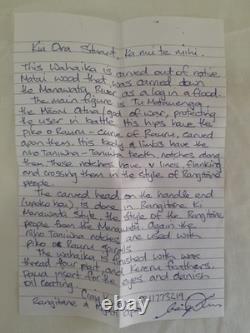 Kia Ora Stuart, Ka nui te mihi.
This Wahaika is carved out of native
Matai wood that was carved down
the Manawatu River as a log in a flood.
The main figure is Tu Matauenga
the Maori Atua/god of war, protecting
the user in battle. This hips have the
piko o Rauru - curve of Rauru, carved
upon them. His body & limbs have the
niho Taniwha - Taniwha teeth, notches along
them those notches have V lines finishing
and crossing them in the style of Rangitane
people.
The carved head on the handle end
(upoko kou) is done in Rangitane ki
Manawatu style, the style of the Rangitane
people from the Manawatu. Again the
niho Taniwha notches are used with
piko o Rauru spirals
The wahaika is finished with wax
thread four plait and Kereru feathers.
Paua insert for the eyes and danish
oil coating
Craig
Rangitane